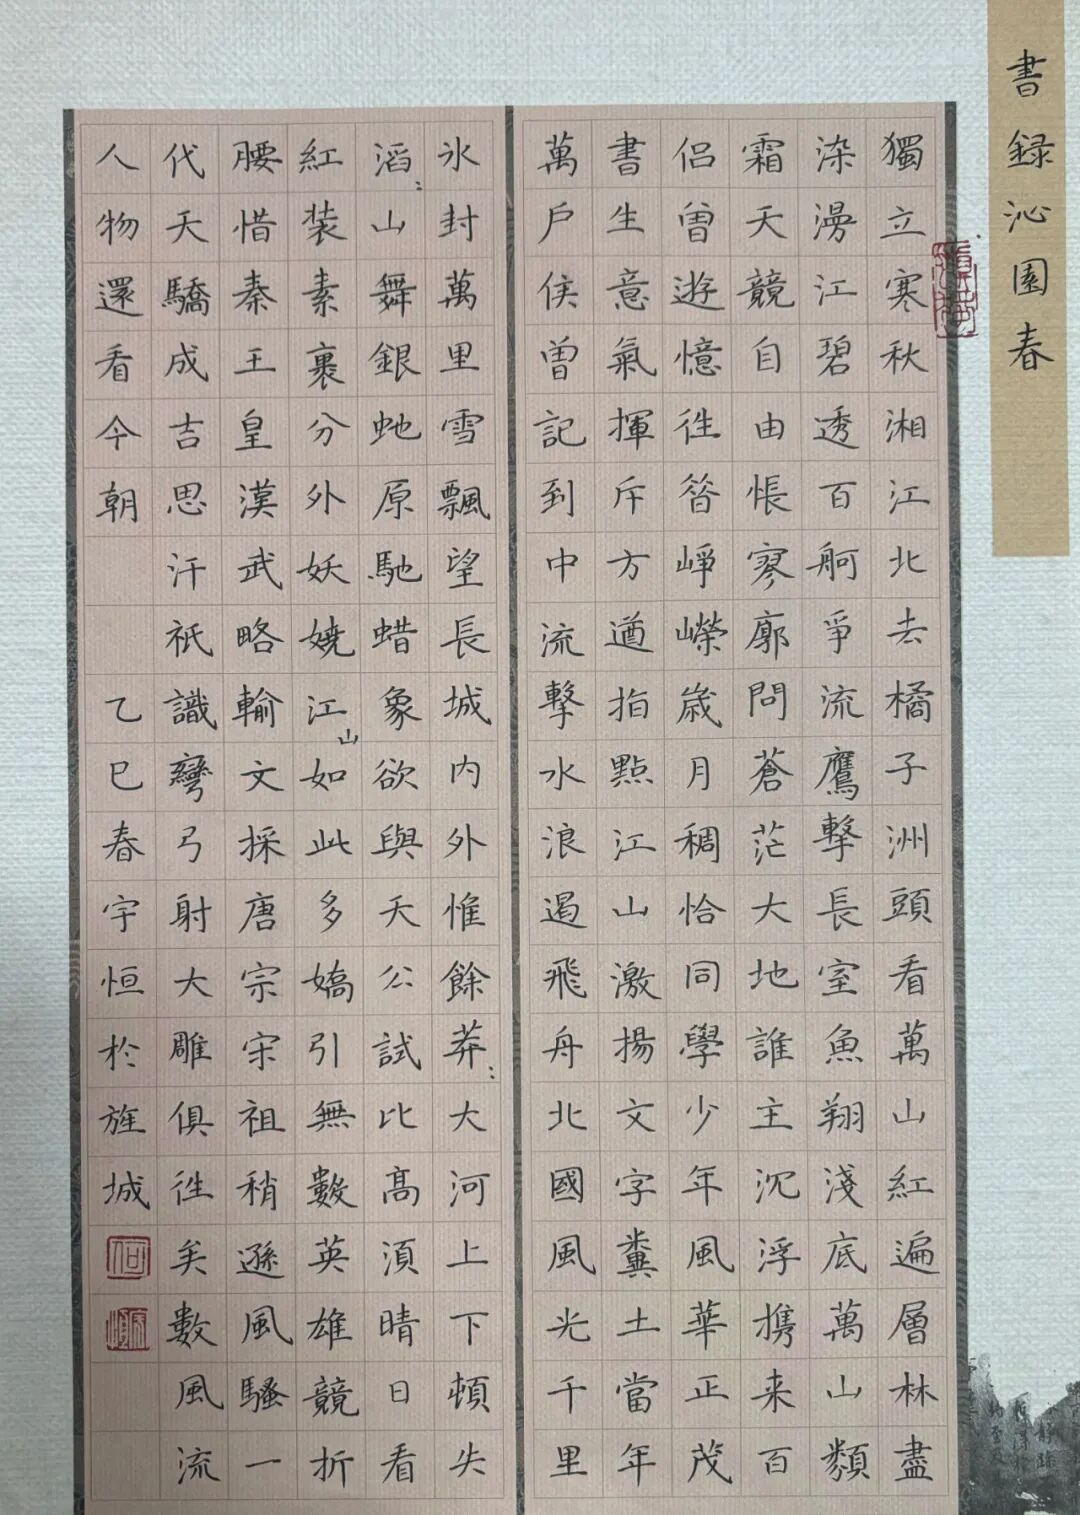 書録沁園春
獨立寒秋湘江北去橘子洲頭看萬山紅遍層林盡
染漫江碧透百舸爭流鷹擊長室魚翔淺底萬山類
霜天競自由悵寥廓問蒼茫大地誰主沉浮携来百
侣曾遊憶徃昔崢嶸歲月稠恰同學少年風華正茂
書生意氣揮斥方遒指點江山激揚文字糞土當年
萬户侯曾記到中流擊水浪遏飛舟北國風光千里
氷封萬里雪飄望長城内外惟餘莽〻大河上下頓失
滔〻山舞銀虵原馳蜡象欲與天公試比高須晴日看
紅装素裹分外妖嬈江山如此多嬌引無數英雄競折
腰惜秦王皇漢武略輸文採唐宗宋祖稍遜風騷一
代天驕成吉思汗祇識彎弓射大雕俱徃矣數風流
人物還看今朝 乙巳春宇恒於旌城
何